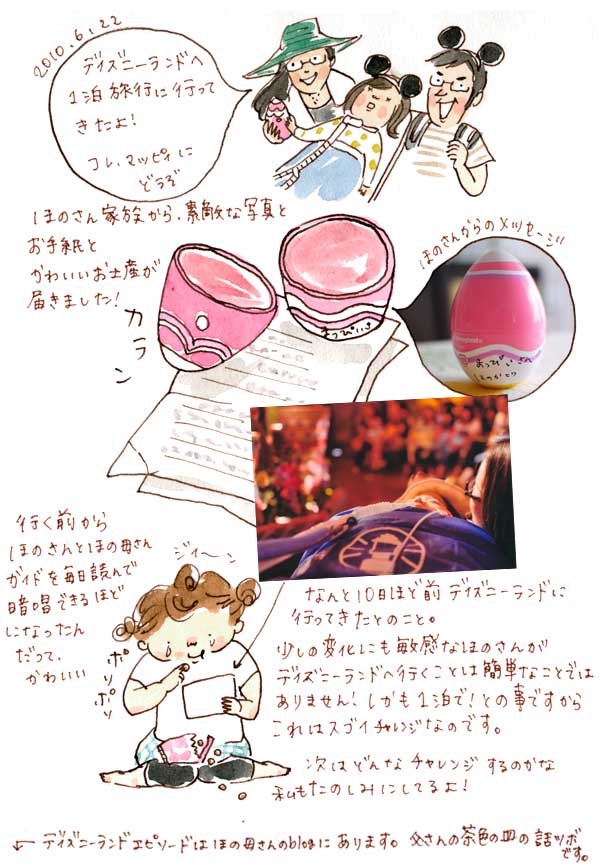 2010.6.22
ディズニーランドへ
1泊旅行に行って
きたよ!
コレ、マッピィに
どうぞ
ほのさん家族から、素敵な写真と
お手紙と
かわいいお土産が
届きました!
ほのさんからのメッセージ
カラン
まっぴいさ
まっぴいさん
行く前から
ほのさんとほの母さん
ガイドを毎日読んで
暗唱できるほど
になったん
だって、
かわいい
ジィ〜ン
ポリポリ
なんと10日ほど前ディズニーランドに
行ってきたとのこと。
少しの変化にも敏感なほのさんが
ディズニーランドへ行くことは簡単なことでは
ありません!しかも1泊で!との事ですから
これはスゴイチャレンジなのです。
次はどんなチャレンジするのかな
私もたのしみにしてるよ!
← ディズニーランドエピソードはほの母さんのblogにあります。父さんの茶色の皿の話ツボ
です。